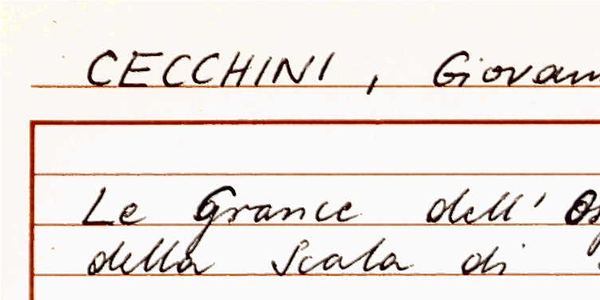 CECCHINI, Giovan
Le Grance dell' Os
della Scala di